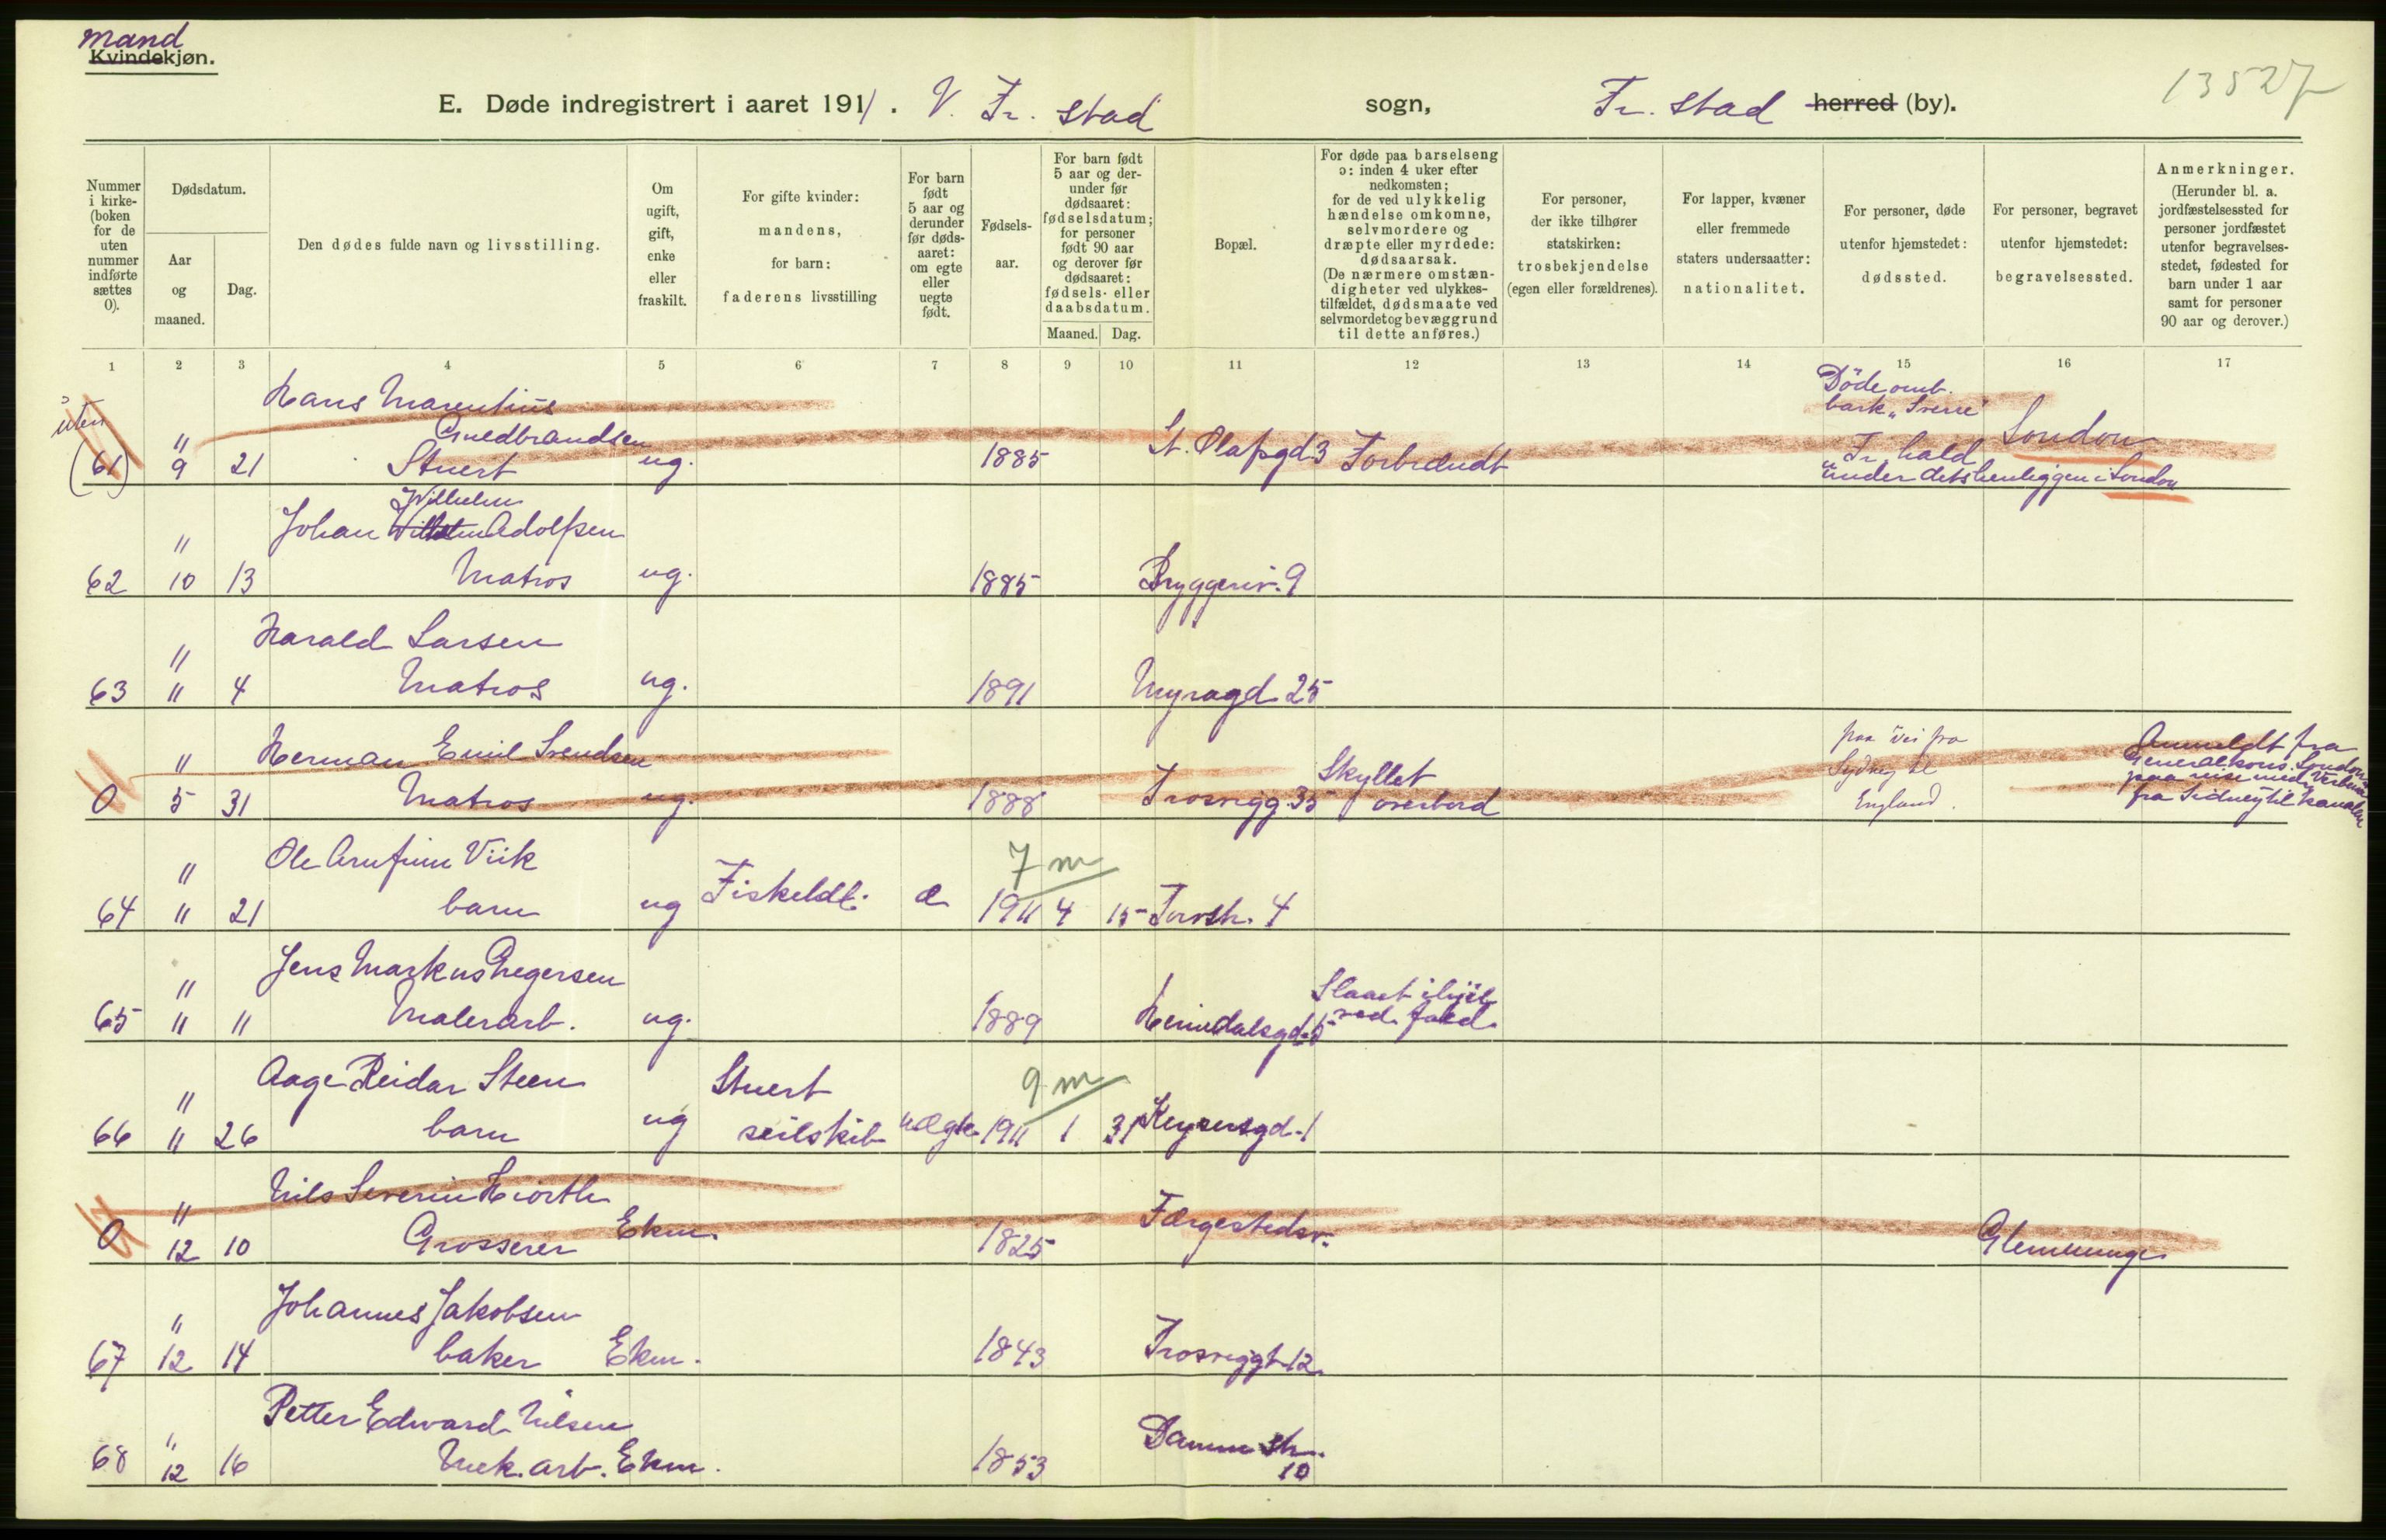 mand
Kvindekjøn.
13527
E. Døde indregistrert i aaret 1911. V. Fr. stad sogn, Fr. stad herred (by).
Nummer i kirke-(boken for de uten nummer indførte sættes 0).
Dødsdatum.
Aar og maaned.
Dag.
Den dødes fulde navn og livsstilling.
Om ugift, gift, enke eller fraskilt.
For gifte kvinder: mandens, for barn: faderens livsstilling
For barn født 5 aar og derunder før døds-aaret: om egte eller uegte født.
Fødsels-aar.
For barn født 5 aar og der-under før dødsaaret: fødselsdatum; for personer født 90 aar og derover før dødsaaret: fødsels- eller daabsdatum.
Maaned. Dag.
Bopæl.
For døde paa barselseng ɔ: inden 4 uker efter nedkomsten; for de ved ulykkelig hændelse omkomne, selvmordere og dræpte eller myrdede: dødsaarsak. (De nærmere omstæn-digheter ved ulykkes-tilfældet, dødsmaate ved selvmordet og bevæggrund til dette anføres.)
For personer, der ikke tilhører statskirken: trosbekjendelse (egen eller forældrenes).
For lapper, kvæner eller fremmede staters undersaatter: nationalitet.
For personer, døde utenfor hjemstedet: dødssted.
For personer, begravet utenfor hjemstedet: begravelsessted.
Anmerkninger. (Herunder bl. a. jordfæstelsessted for personer jordfæstet utenfor begravelses-stedet, fødested for barn under 1 aar samt for personer 90 aar og derover.)
1 2 3 4 5 6 7 8 9 10 11 12 13 14 15 16 17
uten
Hans Marentius
Guldbrandsen
Döde omb.
bark "Sverre"
(61) " 9 21 Stuert ug. 1885 St. Olafsgd 3 Forbrændt Fr. hald London
under dets henliggen i London
Wilhelm
Johan Adolfsen
62 " 10 13 Matros ug. 1885 Bryggeriv. 9
Harald Larsen
63 " " 4 Matros ug. 1891 Myragd 25
Herman Emil Svendsen
0 " 5 31 Matros ug. 1888 Trosvigg. 35 Skyllet overbord
paa vei fra
Sydney til
England.
Anmeldt fra
Generalkons. London
paa reise med
fra Sidney til Kanalen
Ole Arnfinn Viik
7 m
64 " " 21 barn ug Fiskehdl. æ 1911 4 15 Torvstr. 4
Jens Markus Gregersen
65 " " 11 Malerarb. ug. 1889 Heimdalsgd. 5 Slaaet ihjel
ved fald.
Aage Reidar Steen
9 m
66 " " 26 barn ug Stuert
seilskib uægte 1911 1 31 Keysersgd. 1
Nils Severin Hiorth
0 " 12 10 Grosserer Ekm. 1825 Færgestedsv. Glemminge
Johannes Jakobsen
67 " 12 14 baker Ekm. 1843 Trosviggt 12
Petter Edward Nilsen
68 " 12 16 Mek. arb. Ekm. 1853 Damm str.
10